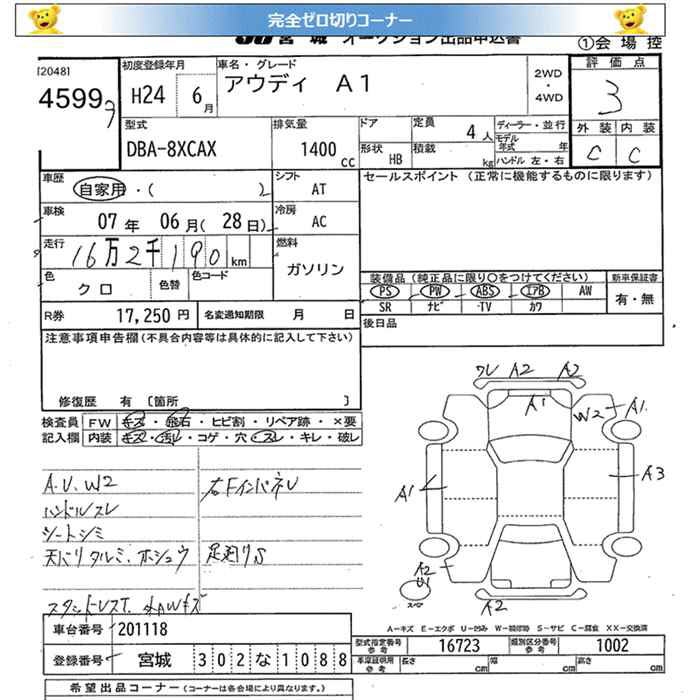 完全ゼロ切りコーナー
宮城 オークション出品申込書
①会場控
[2048]
4599
初度登録年月
H24 6月
車名・グレード
アウディ A1
2WD・4WD
評価点
3
外装 内装
C C
型式
DBA-8XCAX
排気量
1400 cc
ドア
形状 HB
定員 4人
積載 kg
ディーラー・並行
モデル年式 年
ハンドル 左・右
車歴
自家用・( )
シフト
AT
車検
07年 06月(28日)
冷房
AC
走行
16万2千190km
燃料
ガソリン
色
クロ
色替
色コード
R券 17,250円
名変通知期限 月 日
セールスポイント(正常に機能するものに限ります)
装備品(純正品に限り○をつけてください)
PS PW ABS エアB AW
SR ナビ TV カワ
新車保証書
有・無
後日品
注意事項申告欄(不具合内容等は具体的に記入して下さい)
修復歴 有 〔箇所 〕
検査員記入欄
FW キズ・飛石・ヒビ割・リペア跡・×要
内装 キズ・汚れ・コゲ・穴・スレ・キレ・破レ
A.U.W2
ハンドルスレ
シートシミ
天バリタルミ、ホシュウ
右FインパネU
足廻りS
スタットレスT. 社外AWキズ
ワレ A2 A2
A1
W2 A1
A1
A3
A2
U1
スペア
A2
A-キズ E-エクボ U-凹み W-補修跡 S-サビ C-腐食 XX-交換済
車台番号 201118
登録番号 宮城 302な1088
型式指定番号 参考 16723
類別区分番号 参考 1002
車庫証明用 参考 長さ cm 幅 cm 高さ cm
希望出品コーナー(コーナーは各会場により異なります。)